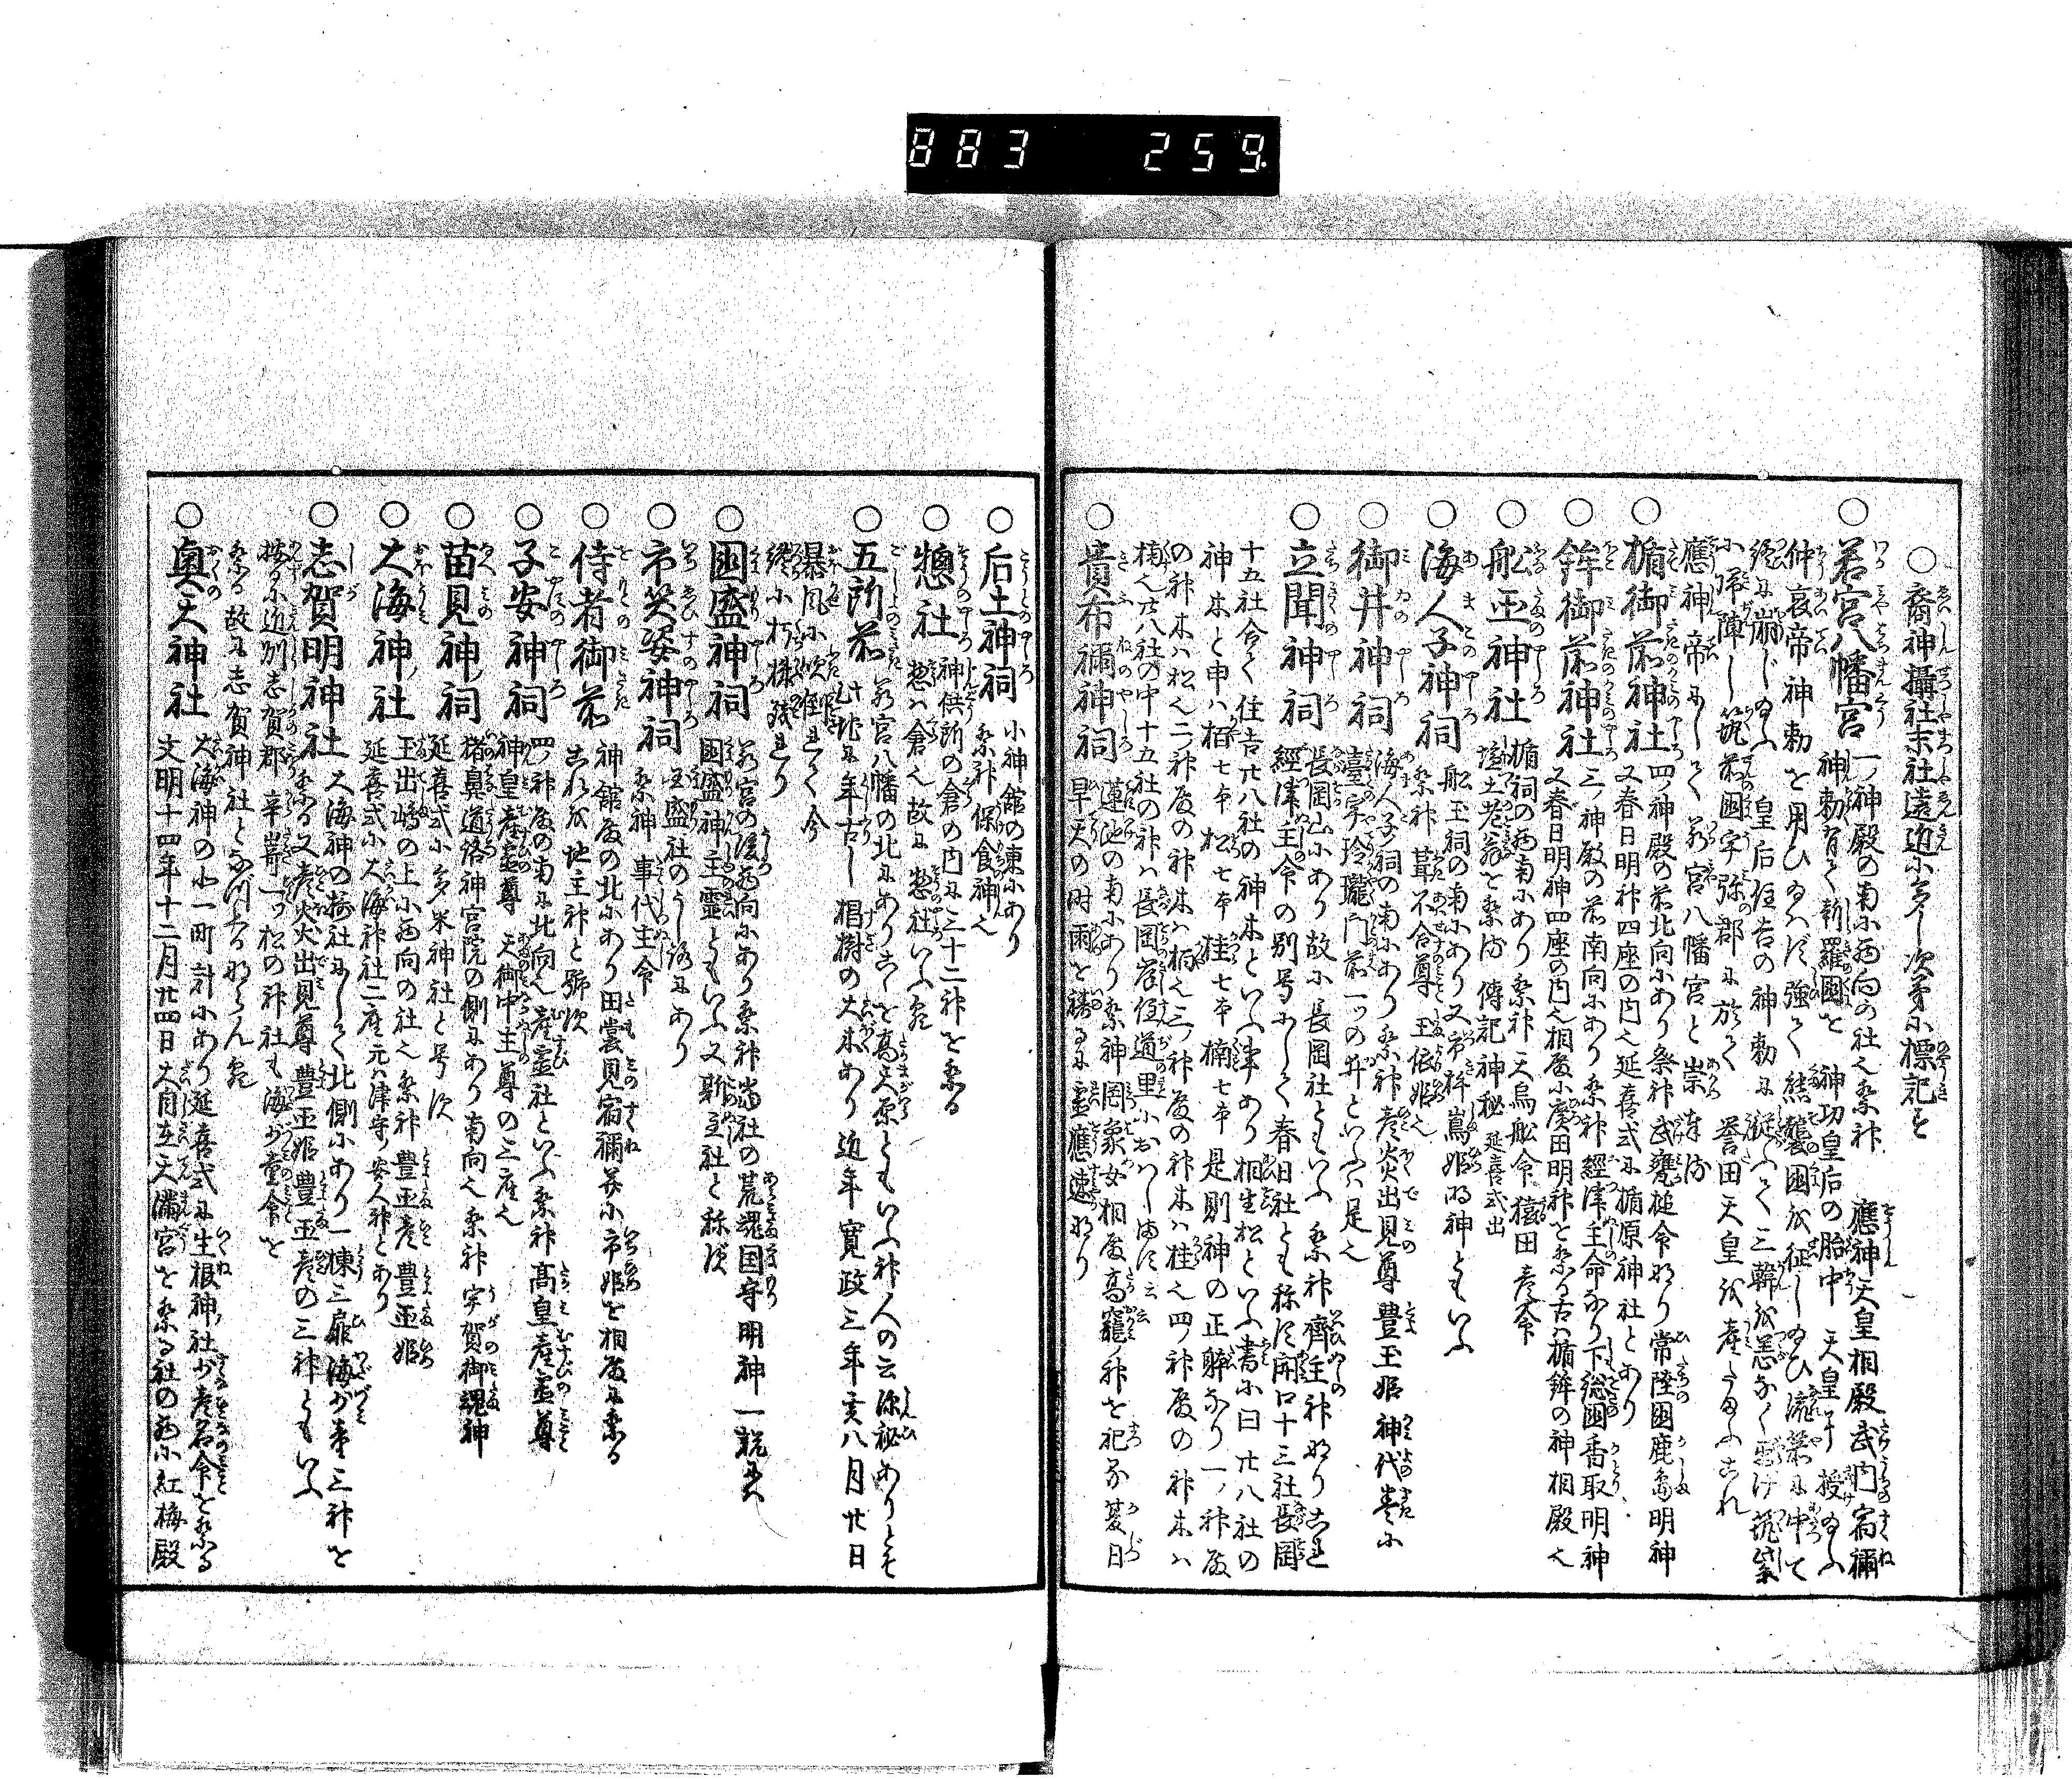 883 259.
○裔神攝社末社遠近に多し次第に標記を
○若宮八幡宮 一ノ神殿の南に西向の社也祭神 應神天皇相殿武内宿禰
神勅有て新羅國を 神功皇后の胎中 天皇に授給ふ
仲哀帝神勅を用ひ給はず強て熊襲國を征し給ひ流矢に中て
終に崩じ給ふ 皇后住吉の神勅に従ふて三韓を 筑紫
に帰陣し筑前國宇弥郡に於て 誉田天皇を産たまふこれ
應神帝にして若宮八幡宮と崇奉る
○楯御前神社 四ノ神殿の前北向にあり祭神武甕槌命なり常陸國鹿島明神
又春日明神四座の内也延喜式に楯原神社とあり
○鉾御前神社 三ノ神殿の前南向にあり祭神經津主命なり下総國香取明神
又春日明神四座の内也相殿に廣田明神を祭る古は楯鉾の神相殿也
○舩玉神社 楯祠の西南にあり祭神天鳥舩命猿田彦命
塩土老翁を祭る 傳記神秘 延喜式出
○海人子神祠 舩玉祠の南にあり又市杵嶌姫の神ともいふ
祭神葺不合尊 玉依姫也
○御井神祠 海人子祠の南にあり祭神彦火々出見尊豊玉姫 神代巻に
臺宇玲瓏門前一つの井といふは是也
○立聞神祠 長岡山にあり故に長岡社ともいふ 祭神齊主神なり
經津主命の別号にして春日社とも称す 開口十三社長岡
十五社合て住吉廿八社の神木といふ事あり相生松といふ書に曰廿八社の
神木と申は栢七本松七本桂七本楠七本是則神の正躰なり一ノ神殿
の神木は松也二ノ神殿の神木は栢也三ノ神殿の神木は桂也四ノ神殿の神木は
楠也廿八社の中十五社の神は長岡岸住道里におはします云云
○貴布禰神祠 蓮池の南にあり祭神罔象女相殿高龗ノ神を祀る夏日
早天の時雨を祷るに霊應速なり
○后土神祠 小神館の東にあり
祭神 保食神也
○惣社 神供所の倉の内に三十二神を祭る
惣は倉也故に惣社いふ歟
○五所前 若宮八幡の北にありこゝを高天原ともいふ神人の云深秘ありとぞ
此地に年古し椙樹の大木あり近年寛政三年亥八月廿日
暴風に吹倒れて今
終に朽株残れり
○國盛神祠 若宮の後西向にあり祭神當社の荒魂国守明神一説には
國盛神主霊ともいふ又斯主社と称す
○市笑姿神祠 国盛社のうしろにあり
祭神 事代主命
○侍者御前 神館殿の北にあり田裳見宿禰并に市姫を相殿に祭る
これを地主神と號す
○子安神祠 四ノ神殿の南に北向也産霊社といふ祭神高皇産霊尊
神皇産霊尊 天御中主尊の三座也
○苗見神祠 猪鼻道俗神宮院の側にあり南向也祭神 宇賀御魂神
延喜式に多米神社と号す
○大海神社 玉出嶋の上に西向の社也祭神豊玉彦豊玉姫
延喜式に大海神社二座元は津守安人神とあり
○志賀明神社 大海神の摂社にして北側にあり一棟三扉海少童三神を
祭る又彦火火出見尊 豊玉姫豊玉彦の三神ともいふ
按るに近刕志賀郡辛嵜一ツ松の神社も海少童命を
祭る故に志賀神社となづくるならん歟
○奥天神社 大海神の北一町計にあり延喜式に生根神社少彦名命を祭る
文明十四年十二月廿四日大自在天滿宮を祭る社の西に紅梅殿